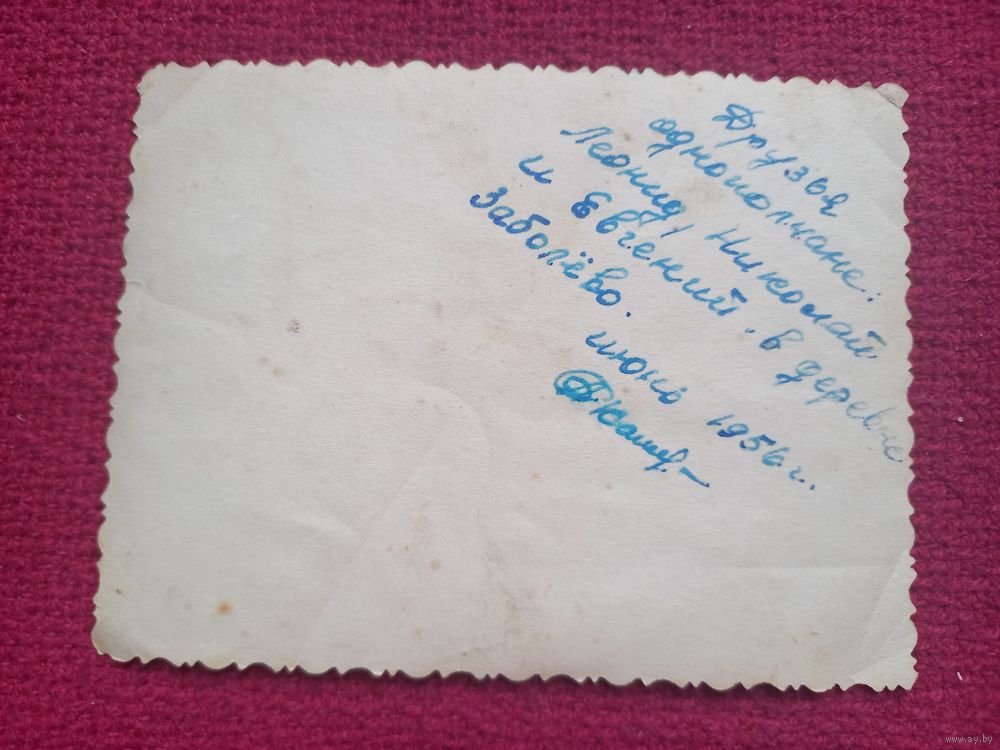 Друзья
однополчане:
Леонид, Николай
и Евгений. в деревне
Заболёво.
июнь 1956 г.
www.ay.by